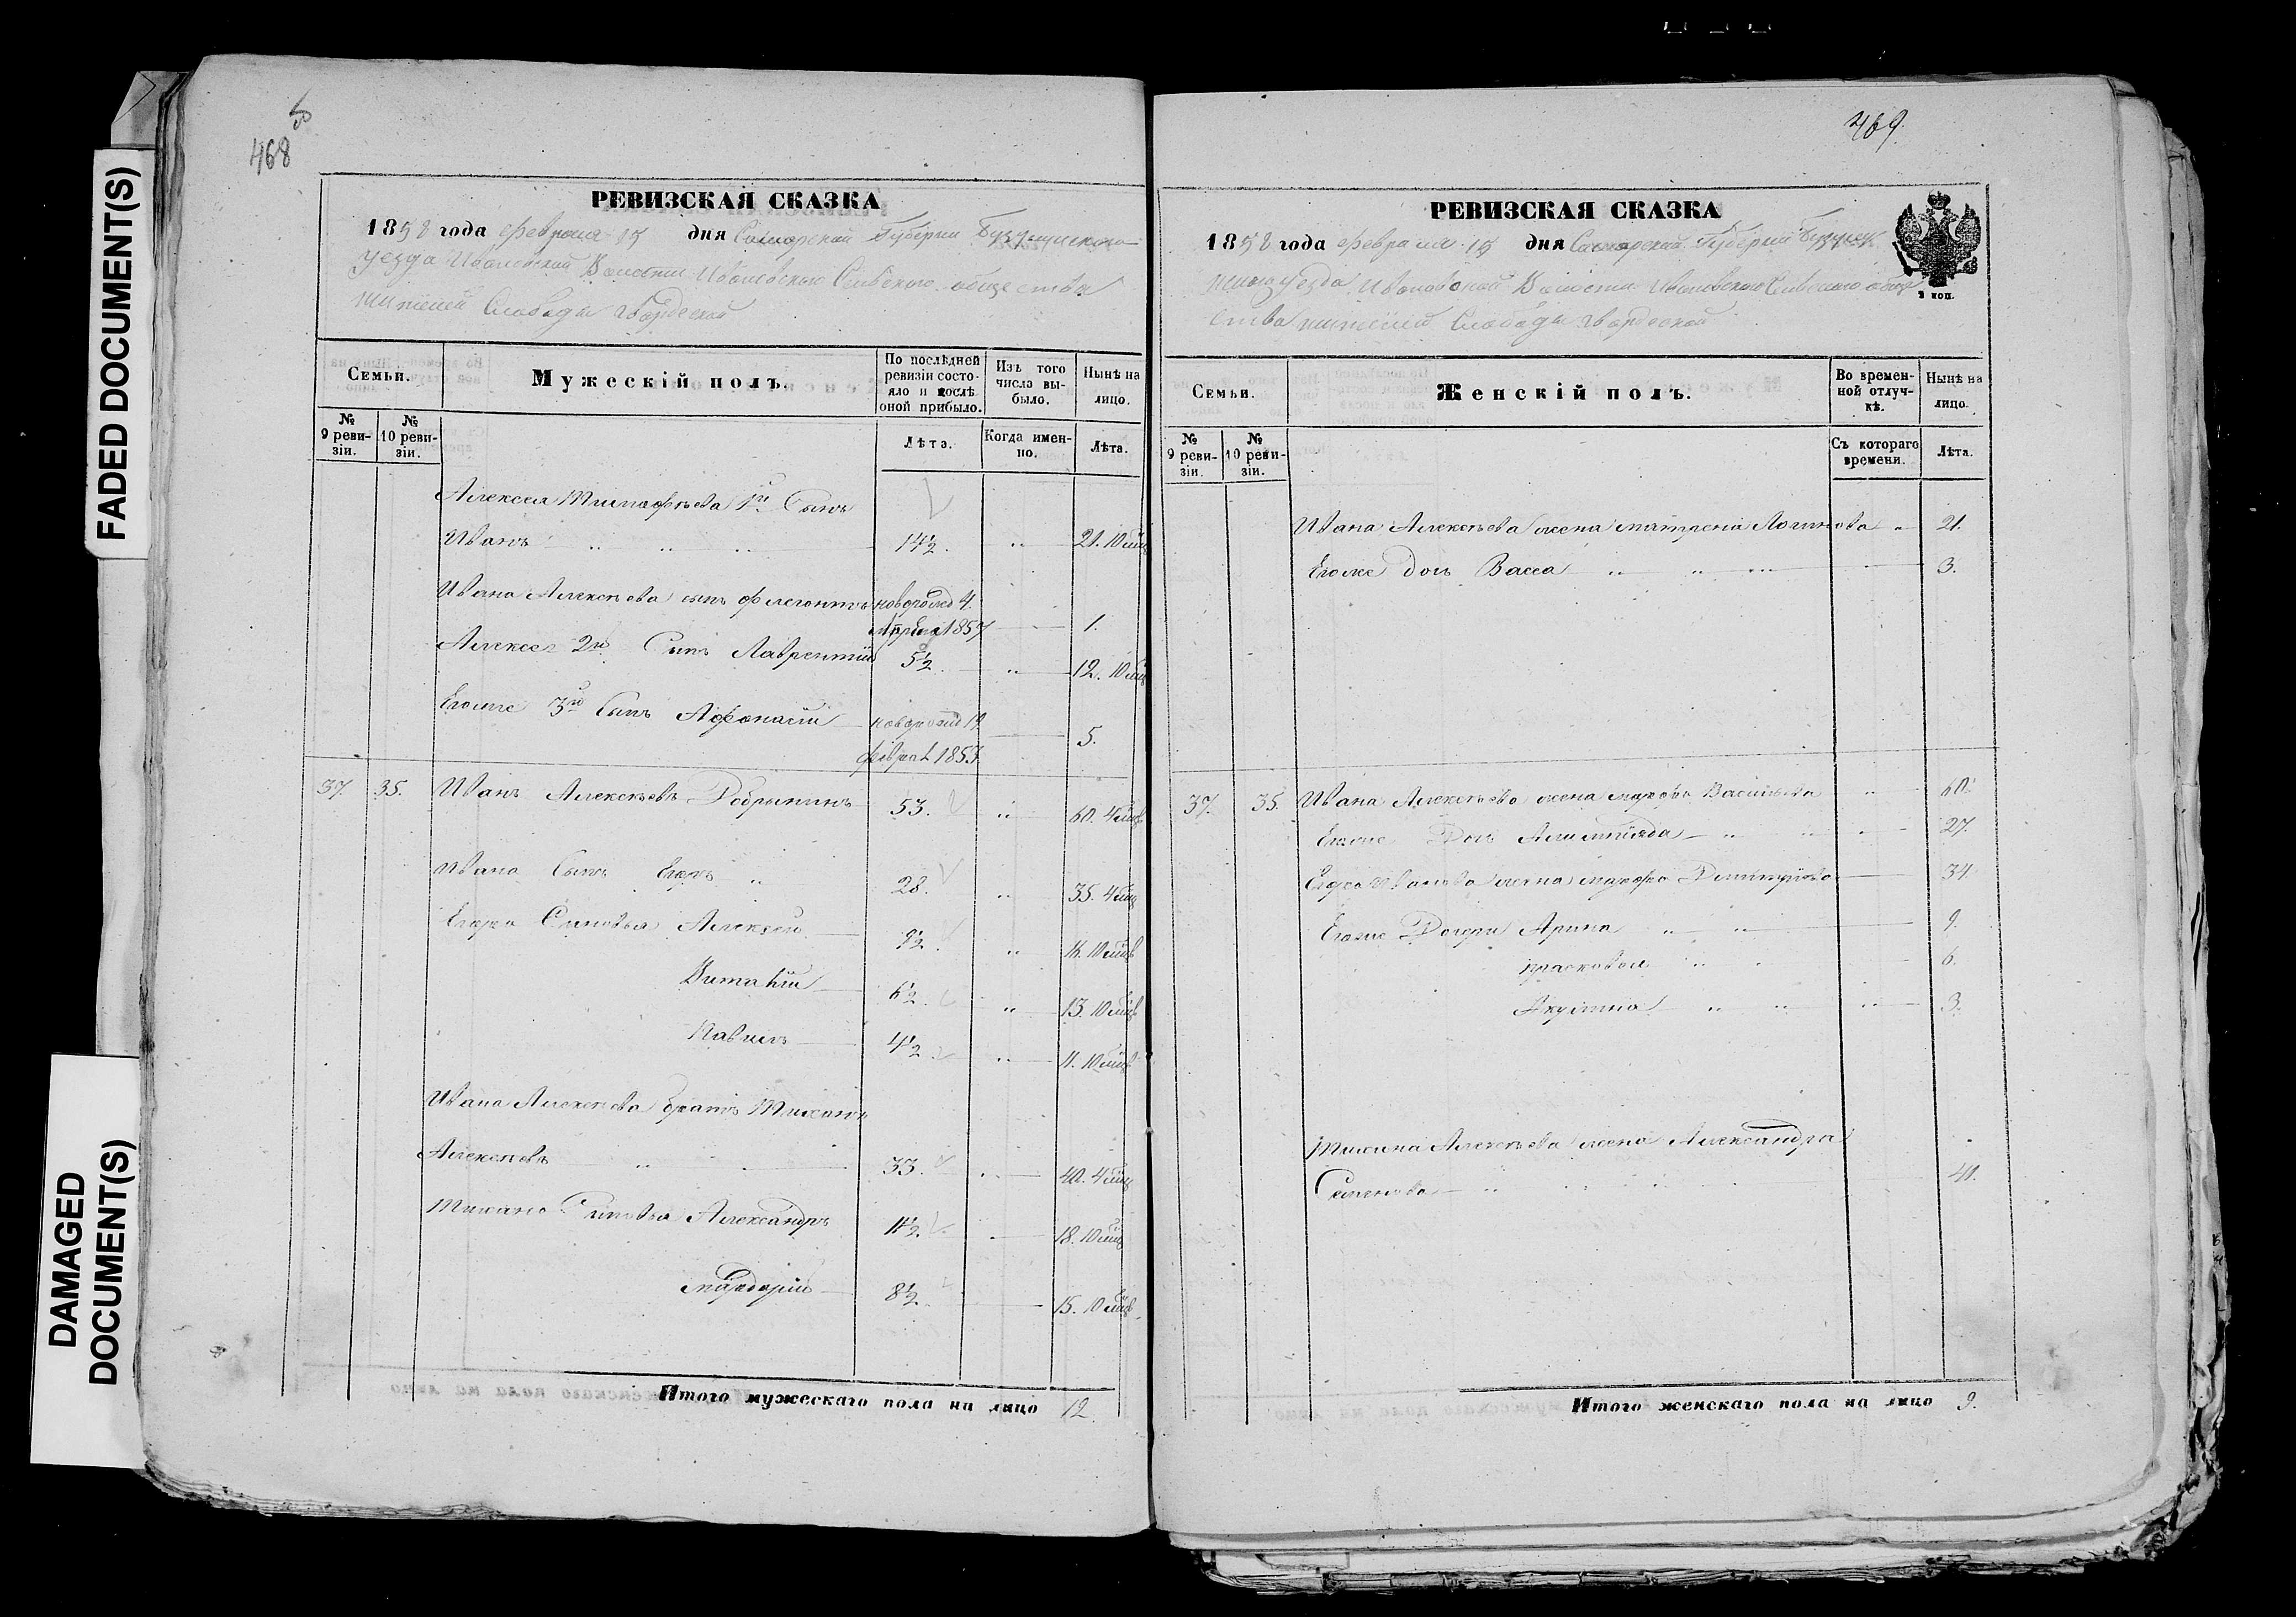 FADED DOCUMENT(S)
DAMAGED
DOCUMENT(S)
468
РЕВИЗСКАЯ СКАЗКА
1858 года февраля 15 дня Самарской Губернии Бузулукского
уезда Ивановской Волости Ивановского Сельского общества
жителей Слободы Гвардейской
Семьи.
Мужескій полъ.
По послѣдней ревизіи состояло и послѣ оной прибыло.
Изъ того числа выбыло.
Нынѣ на лицо.
№ 9 ревизіи.
№ 10 ревизіи.
Лѣта.
Когда именно.
Лѣта.
Алексея Тимофѣева 1й Сынъ
Иванъ 14½. 21. 10 мцв
Ивана Алексѣева сынъ Флегонтъ новорожд 4. Апреля 1857 1.
Алексея 2й Сынъ Лаврентій 5½ 12. 10 мцв
Егоже 3й Сынъ Афонасій новорожд 14 феврал 1853 5.
37. 35. Иванъ Алексѣевъ Добрынинъ 53. 60. 4 мцв
Ивана Сынъ Егоръ 28. 35. 4 мцв
Егора Сыновья Алексей 9½. 16. 10 мцв
Виталій 6½. 13. 10 мцв
Павилъ 4½ 11. 10 мцв
Ивана Алексѣева братъ Тихонъ
Алексѣевъ 33. 40. 4 мцв
Тихана Сыновья Александръ 11½. 18. 10 мцв
Мардарій 8½. 15. 10 мцв.
Итого мужескаго пола на лицо 12.
469.
РЕВИЗСКАЯ СКАЗКА
1858 года февраля 15 дня Самарской Губернии Бузулук
скаго уезда Ивановской Волости Ивановского Сельского обще
ства жителей Слободы Гвардейской
2 коп.
Семьи.
Женскій полъ.
Во временной отлучкѣ.
Нынѣ на лицо.
№ 9 ревизіи.
№ 10 ревизіи.
Съ котораго времени.
Лѣта.
Ивана Алексѣева жена Матрена Логинова 21.
Егоже доч Васса 3.
37. 35. Ивана Алексѣева жена Марфа Васильева 60.
Егоже Доч Алимпіяда 27.
Егора Иванова жена Марфа Дмитріева 34.
Егоже Дочери Арина 9.
Прасковья 6.
Акулина 3.
Тихона Алексѣева жена Александра
Семенова 41.
Итого женскаго пола на лицо 9.